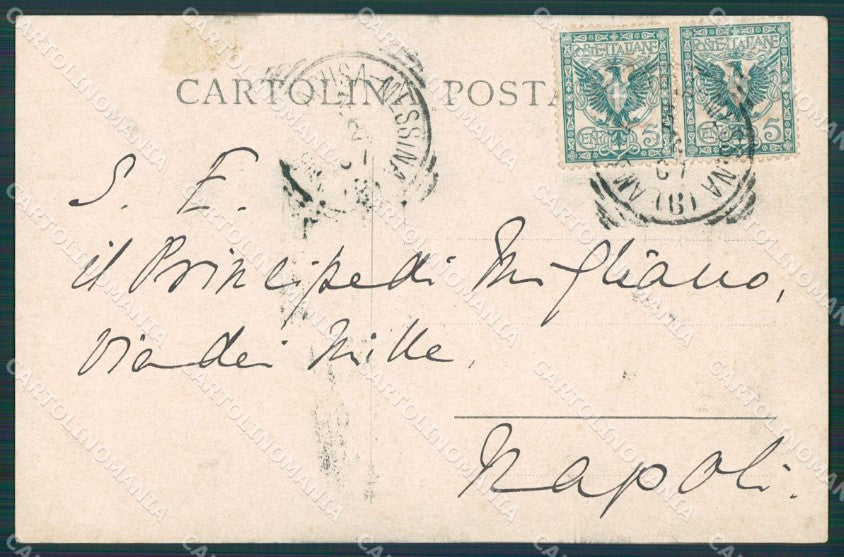 CARTOLINA POSTA
POSTE ITALIANE POSTE ITALIANE
CENT. 5 CENT. 5
USA-MESSINA
(B)
S. E.
il Principe di Migliano,
Via dei Mille,
Napoli.
CARTOLINOMANIA